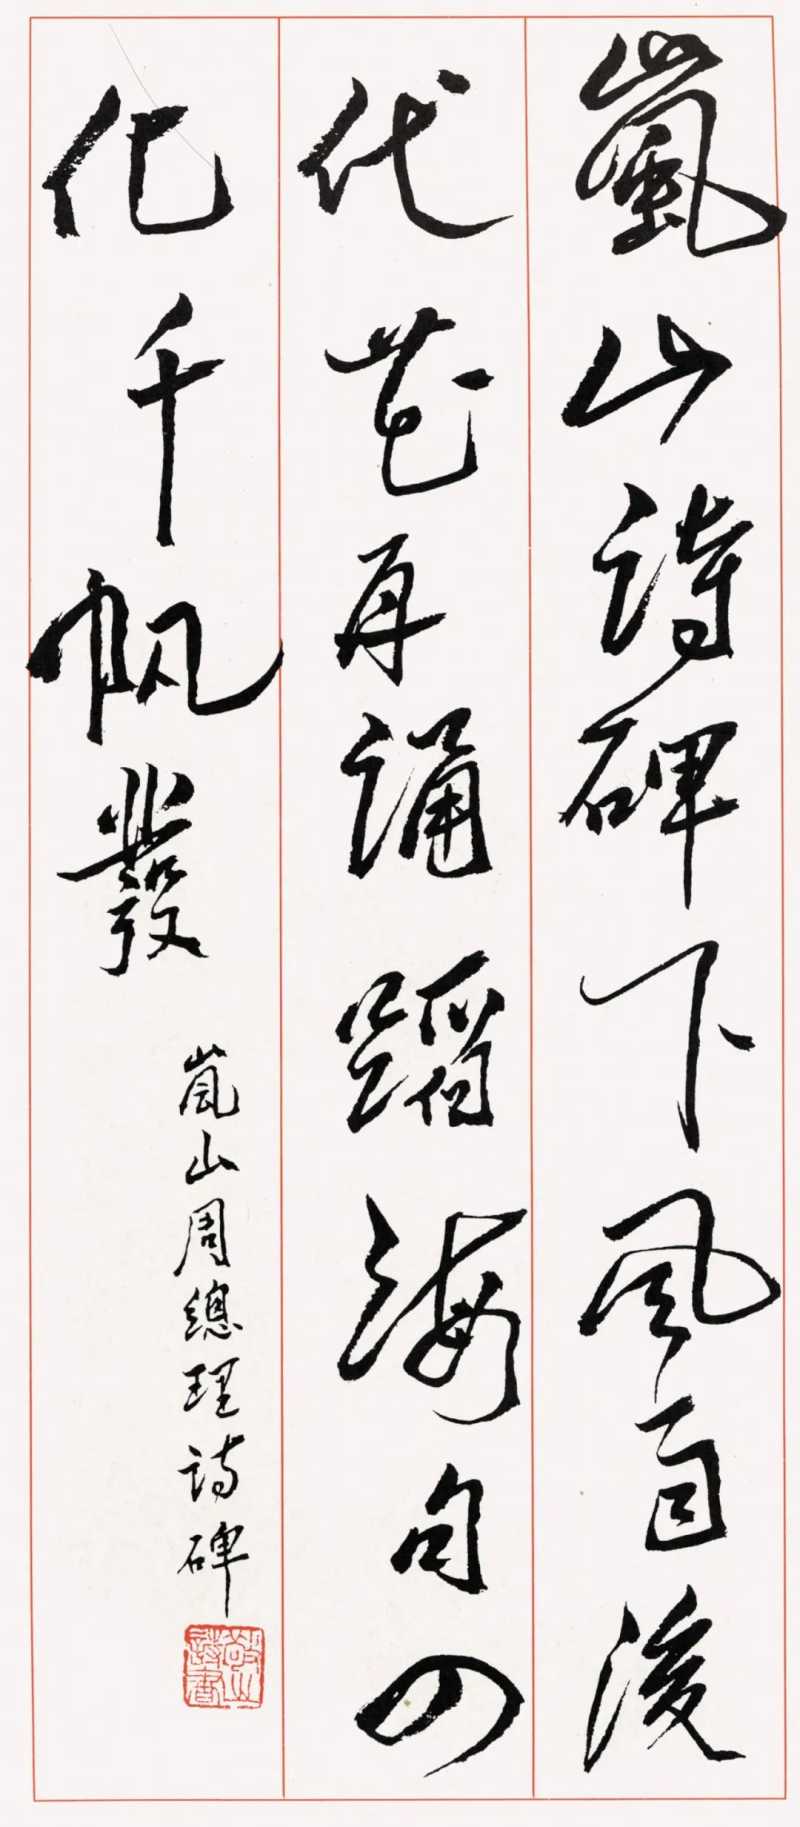 嵐山詩碑下風後
代花再誦蹈海句四
化千帆發
嵐山周總理詩碑